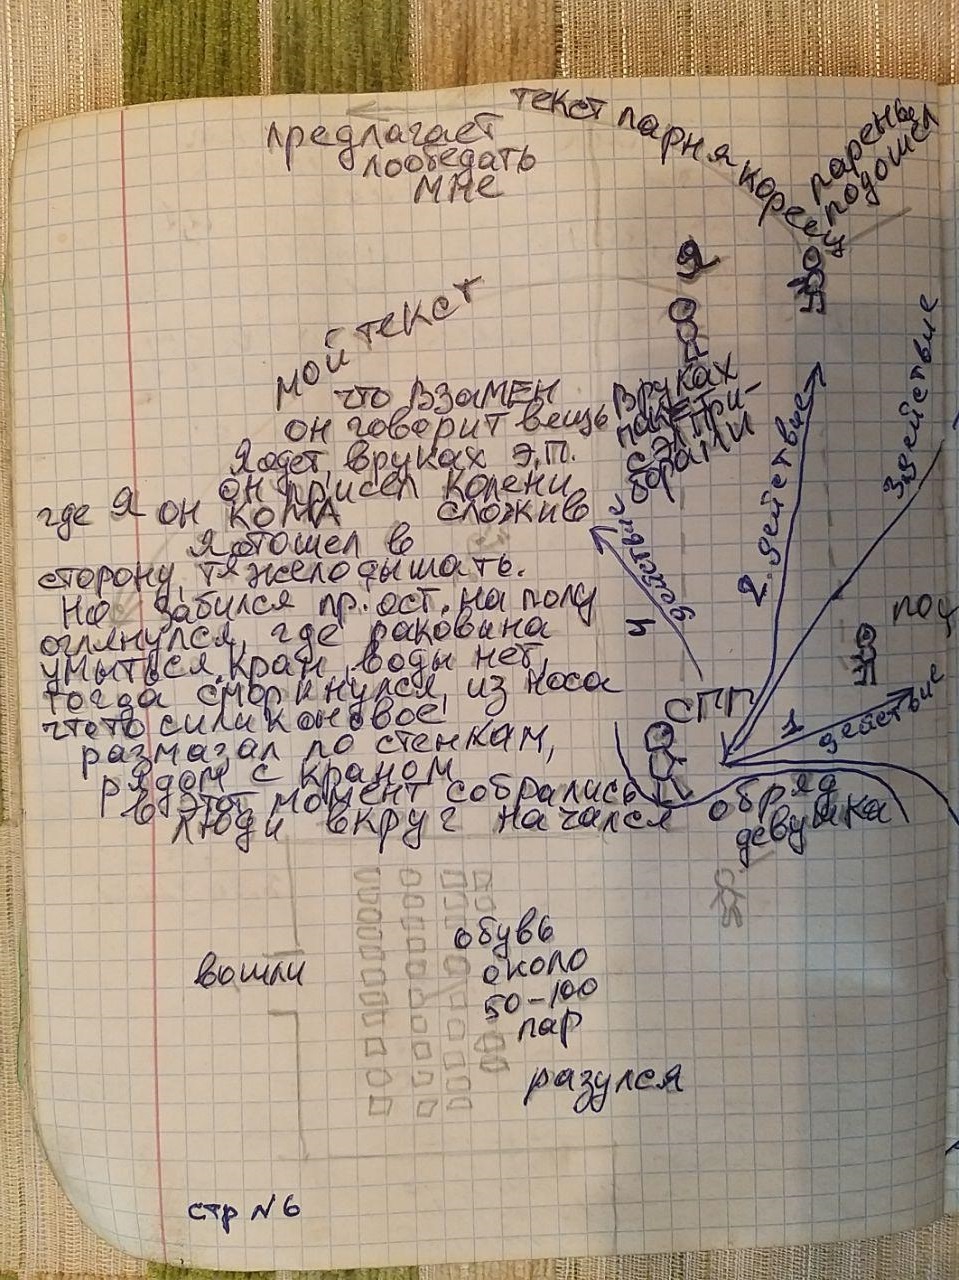 текст парня кореец
предлагает
пообедать
мне
парень
подошел
Я
мой текст
что взамен
он говорит вещь
Я одет, в руках э.п.
он присел колени
где Я он кома сложив
Я отошел в
сторону, тяжело дышать.
Но забился пр. ост. на полу
оглянулся, где раковина
умыться, кран, воды нет,
тогда сморкнулся, из носа
что то силиконовое
размазал по стенкам,
рядом с краном
в этот момент собрались
люди вкруг начался
в руках
пакет
с эл при-
борами
4 действие
2 действие
3 действие
СПП
1 действие
обряд
девушка
вошли
обувь
около
50-100
пар
разулся
стр №6